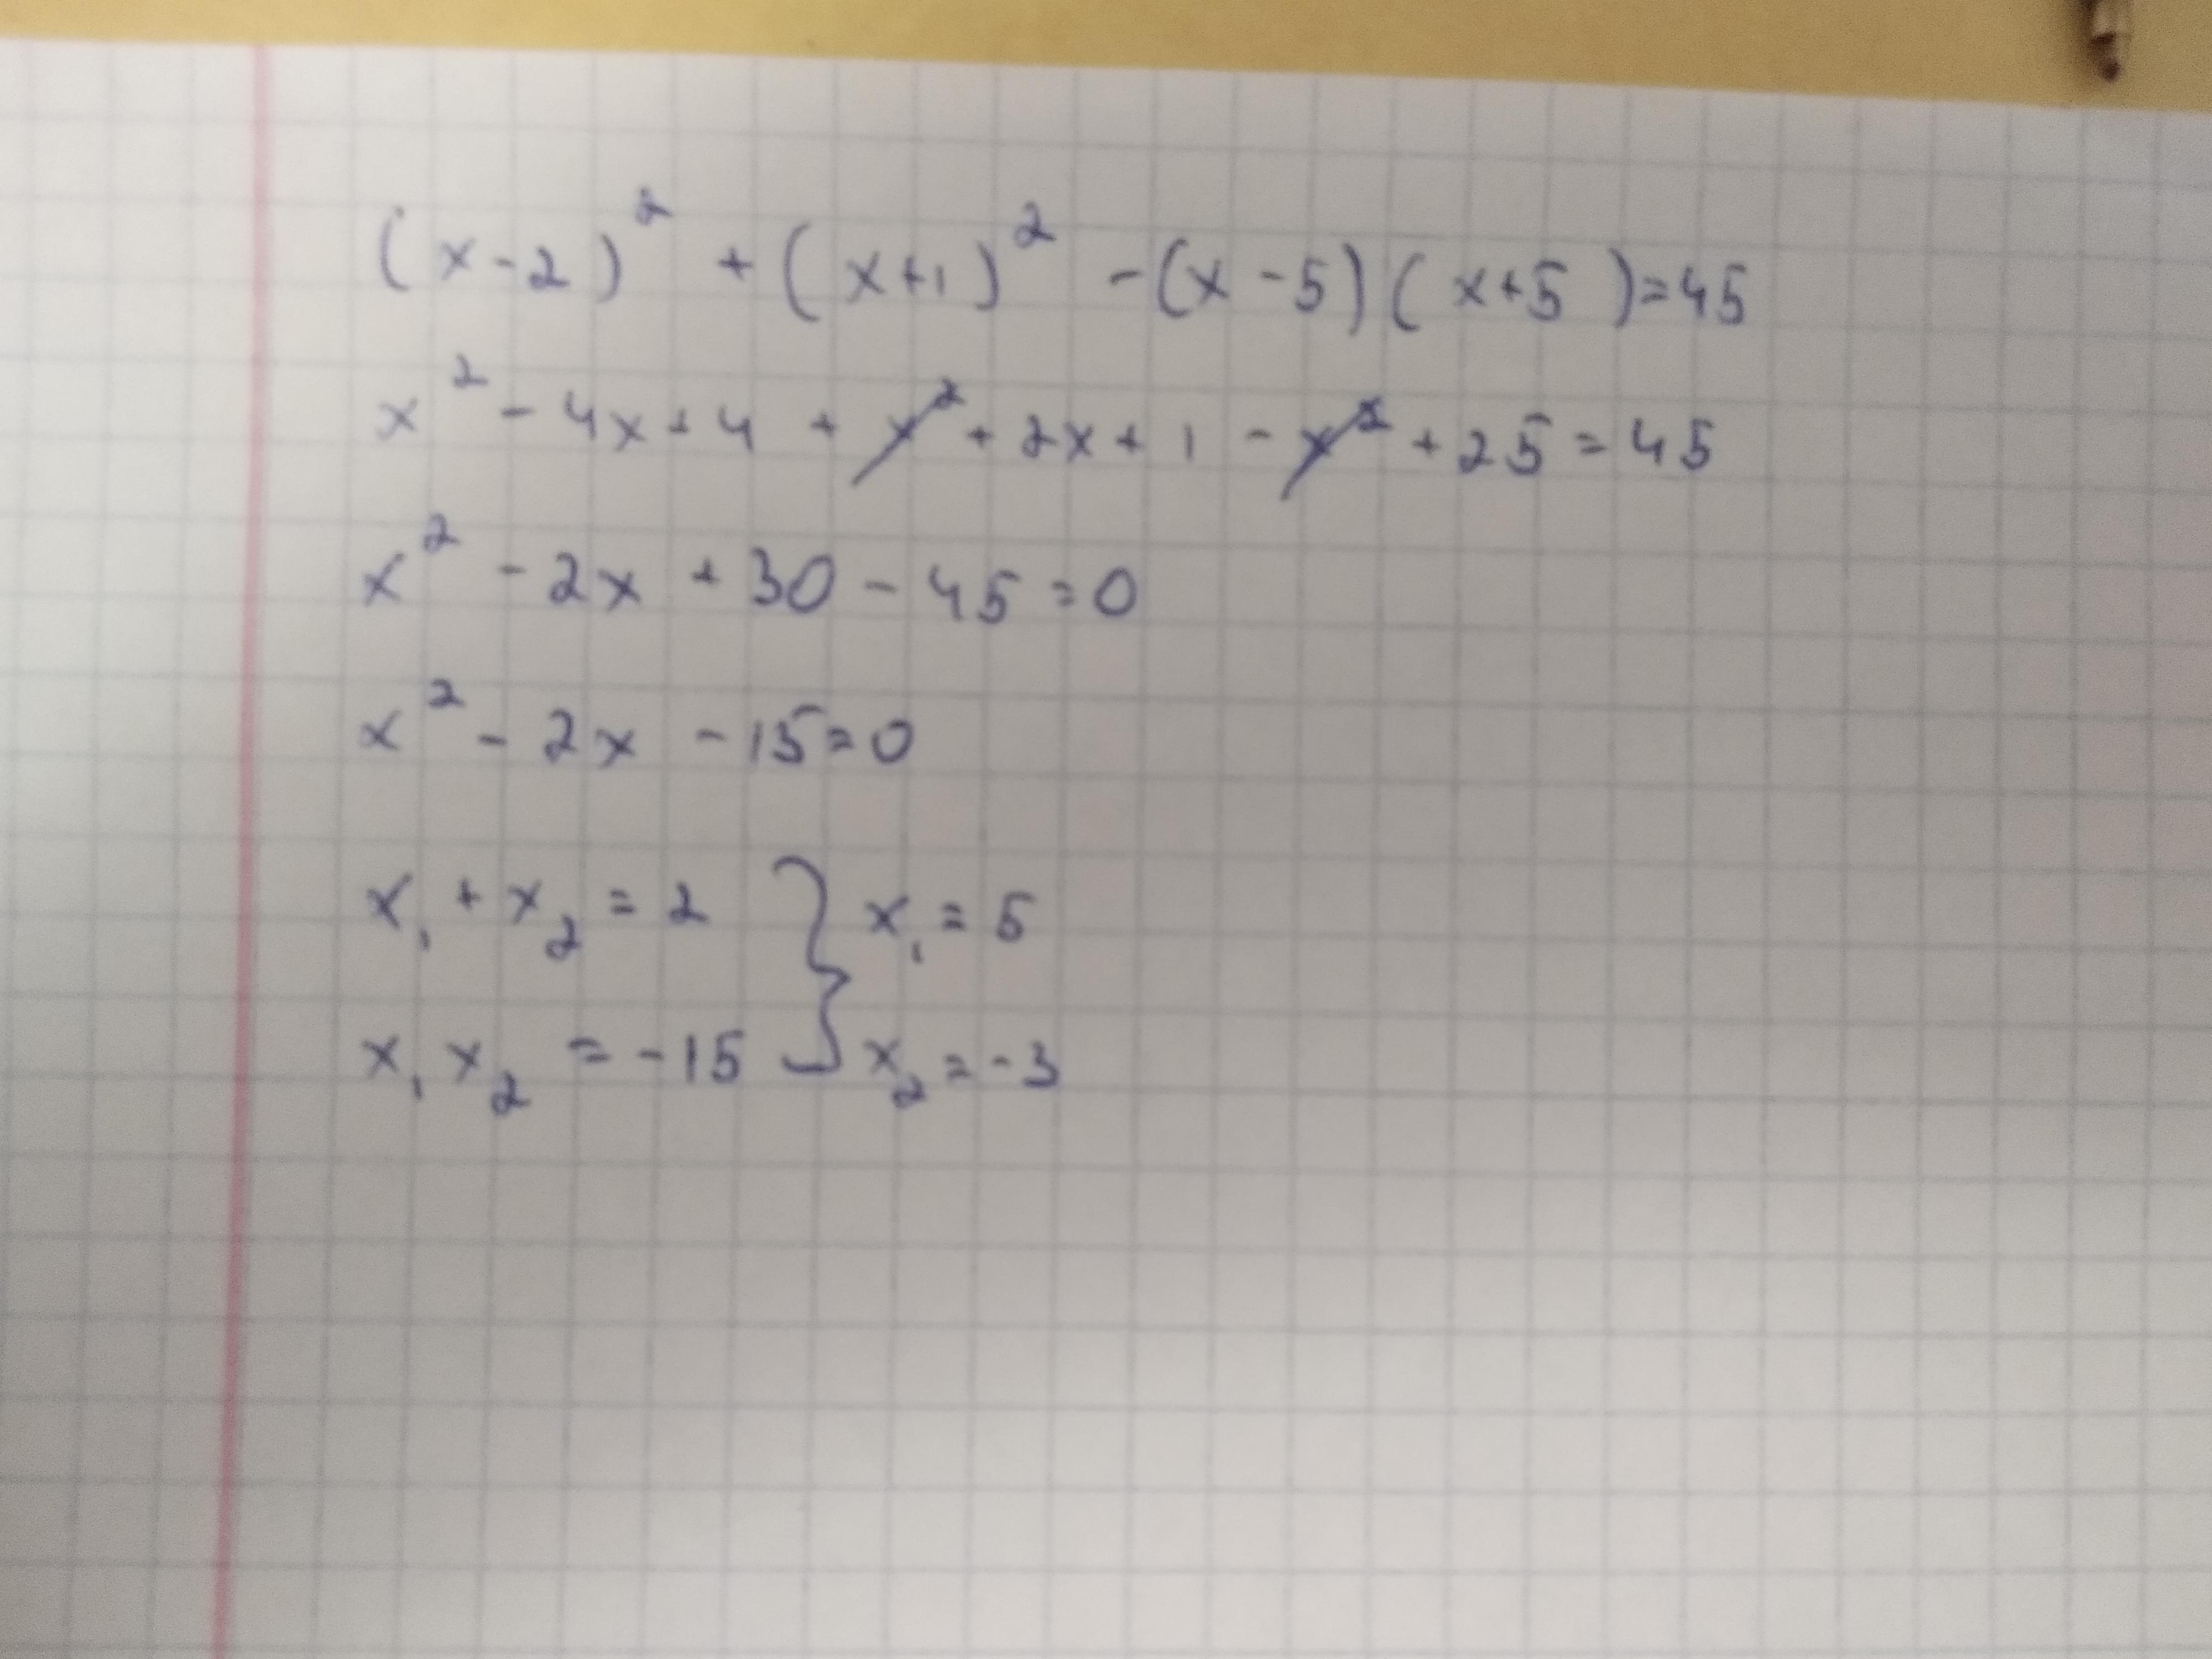 (x-2)² + (x+1)² - (x-5)(x+5)=45
x² - 4x + 4 + x² + 2x + 1 - x² + 25 = 45
x² - 2x + 30 - 45 = 0
x² - 2x - 15 = 0
x₁ + x₂ = 2 } x₁ = 5
x₁ x₂ = -15 } x₂ = -3